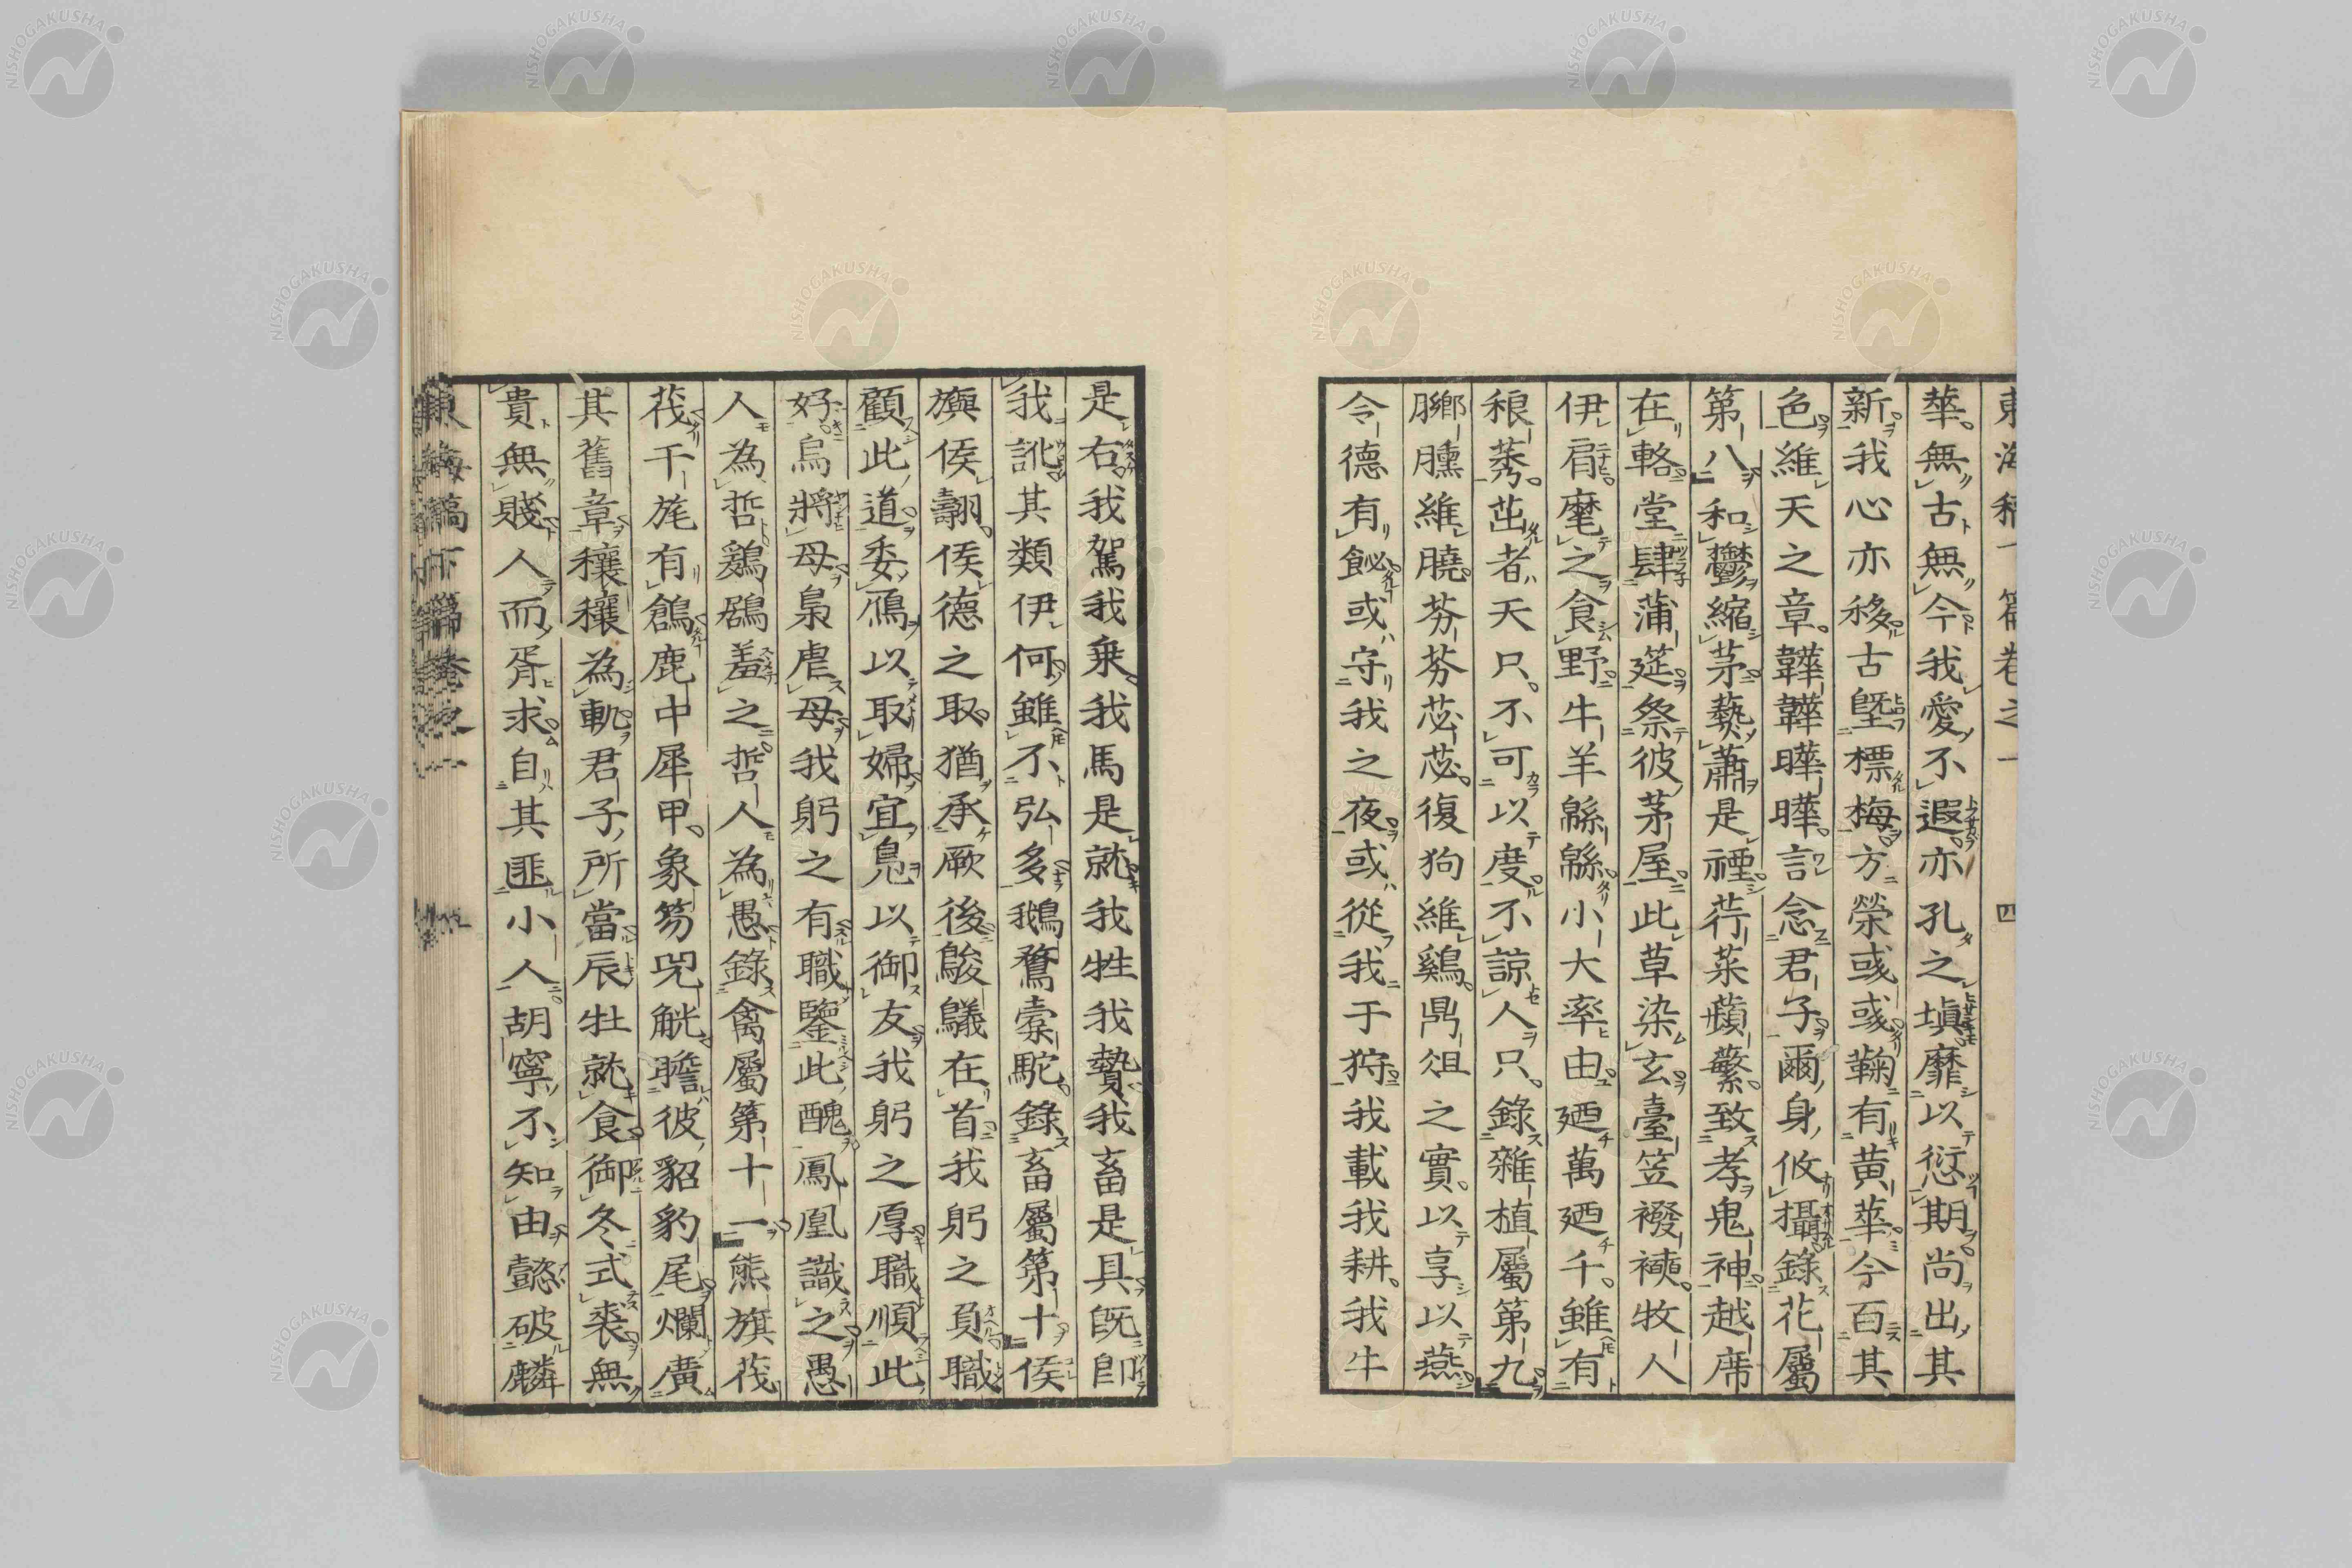 華無古無今我愛不遐亦孔之塡靡以愆期尚出其
新我心亦移古曁標梅方榮或或鞠有黃華今百其
色維天之章韡韡曄曄言念君子爾身攸攝錄花屬
第八和鬱縮茅蓺蕭是禋荇菜蘋蘩致孝鬼神越席
在輅堂肆蒲筵祭彼茅屋此草染玄臺笠襏襫牧人
伊肩麾之食野牛羊緜緜小大率由廼萬廼千雖有
稂莠茁者天只不可以度不諒人只錄雜植屬第九
膷臐維膮芬芬苾苾復狗維鷄鼎俎之實以享以燕
令德有飶或守我之夜或從我于狩我載我耕我牛
是右我駕我乗我馬是就我牲我贄我畜是具旣卽
我訛其類伊何雖不弘多鵝鶩橐駝錄畜屬第十侯
旟侯翿侯德之取猶承厥後鵔鸃在首我躬之負職
顧此道委鴈以取婦宜鳧以御友我躬之厚職順此
好烏將母梟虐母我躬之有職鑒此醜鳳凰識之愚
人為哲鷄鶡羞之哲人為愚錄禽屬第十一熊旗茷
茷干旄有鶬鹿中犀甲象笏兕觥瞻彼貂豹尾爛廣
其舊章穰穰為軌君子所當辰牡就食御冬式裘無
貴無賤人而胥求自其匪小人胡寧不知由懿破麟